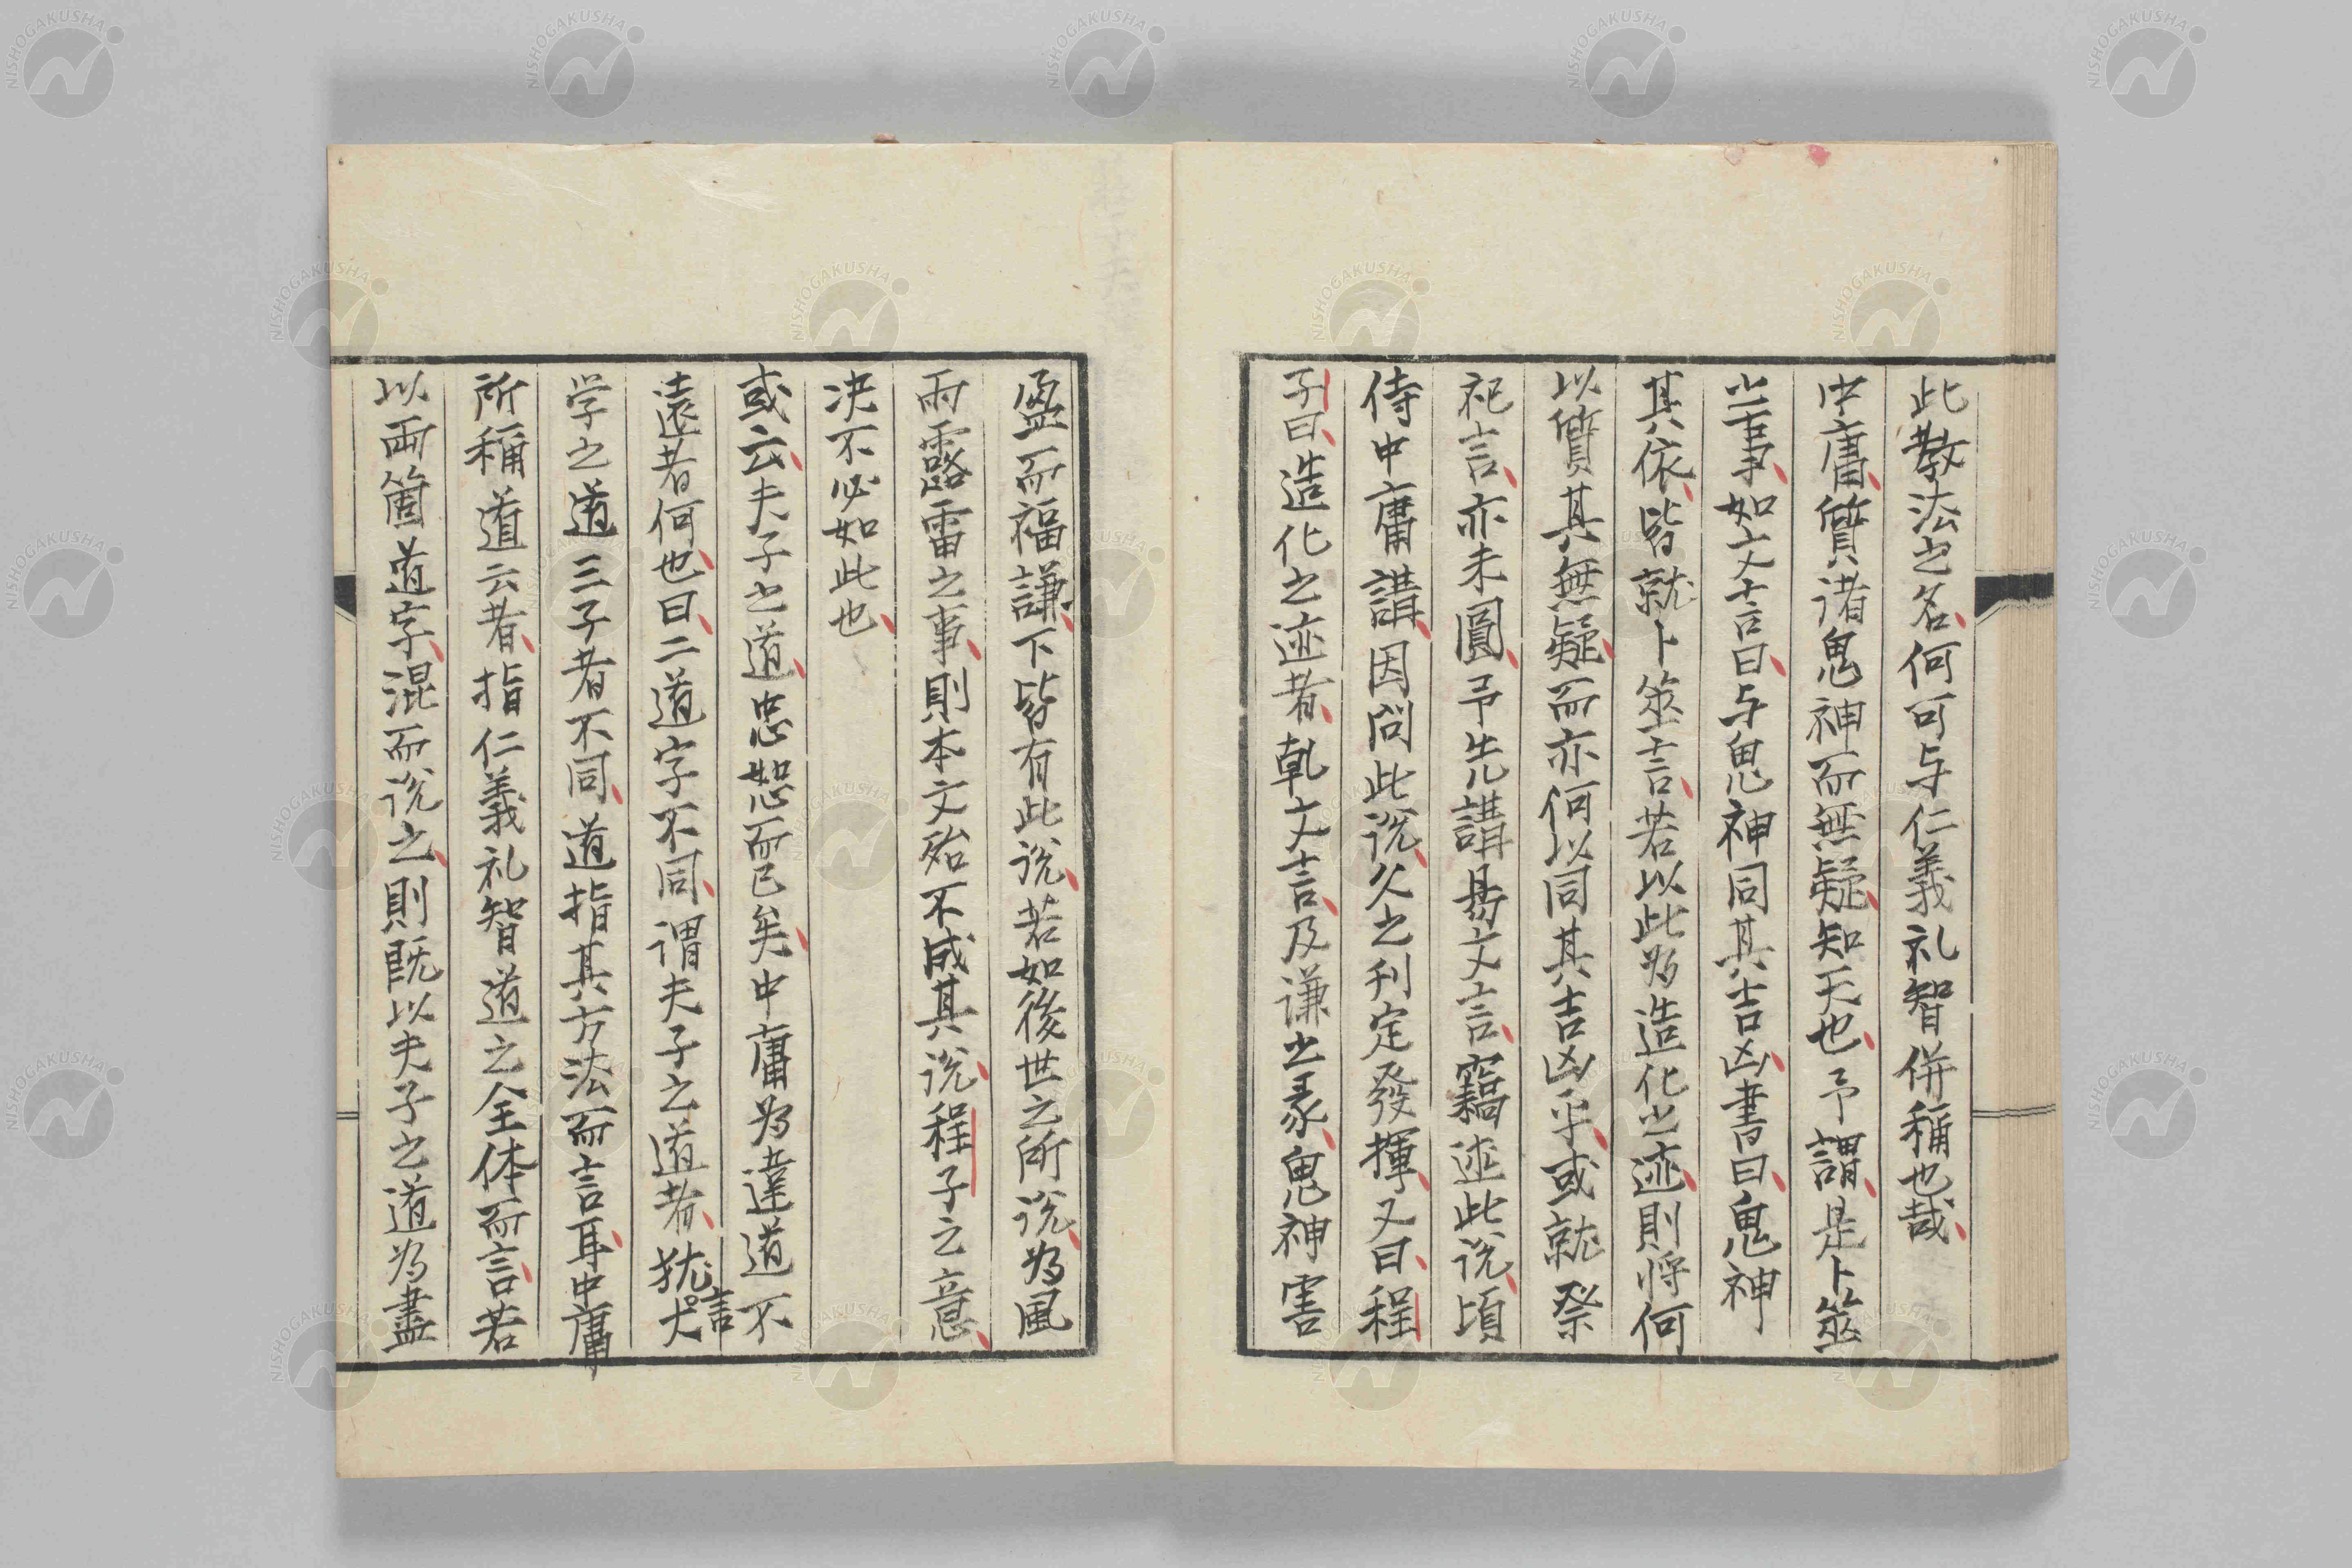 此教法之名何可与仁義礼智併稱也哉
中庸質諸鬼神而無疑知天也予謂是卜筮
之事如文言曰与鬼神同其吉凶書曰鬼神
其依皆就卜筮言若以此為造化之迹則将何
以質其無疑而亦何以同其吉凶乎或就祭
祀言亦未圓予先講易文言竊述此说頃
侍中庸講因问此说久之刊定發揮又曰程
子曰造化之迹者乾文言及谦之彖鬼神害
盈而福謙下皆有此说若如後世之所说為風
雨露雷之事則本文殆不成其说程子之意
决不必如此也
或云夫子之道忠恕而已矣中庸為達道不
遠者何也曰二道字不同谓夫子之道者犹言大
学之道三子者不同道指其方法而言耳中庸
所稱道云者指仁義礼智道之全体而言若
以両箇道字混而说之則既以夫子之道為盡
NISHOGAKUSHA